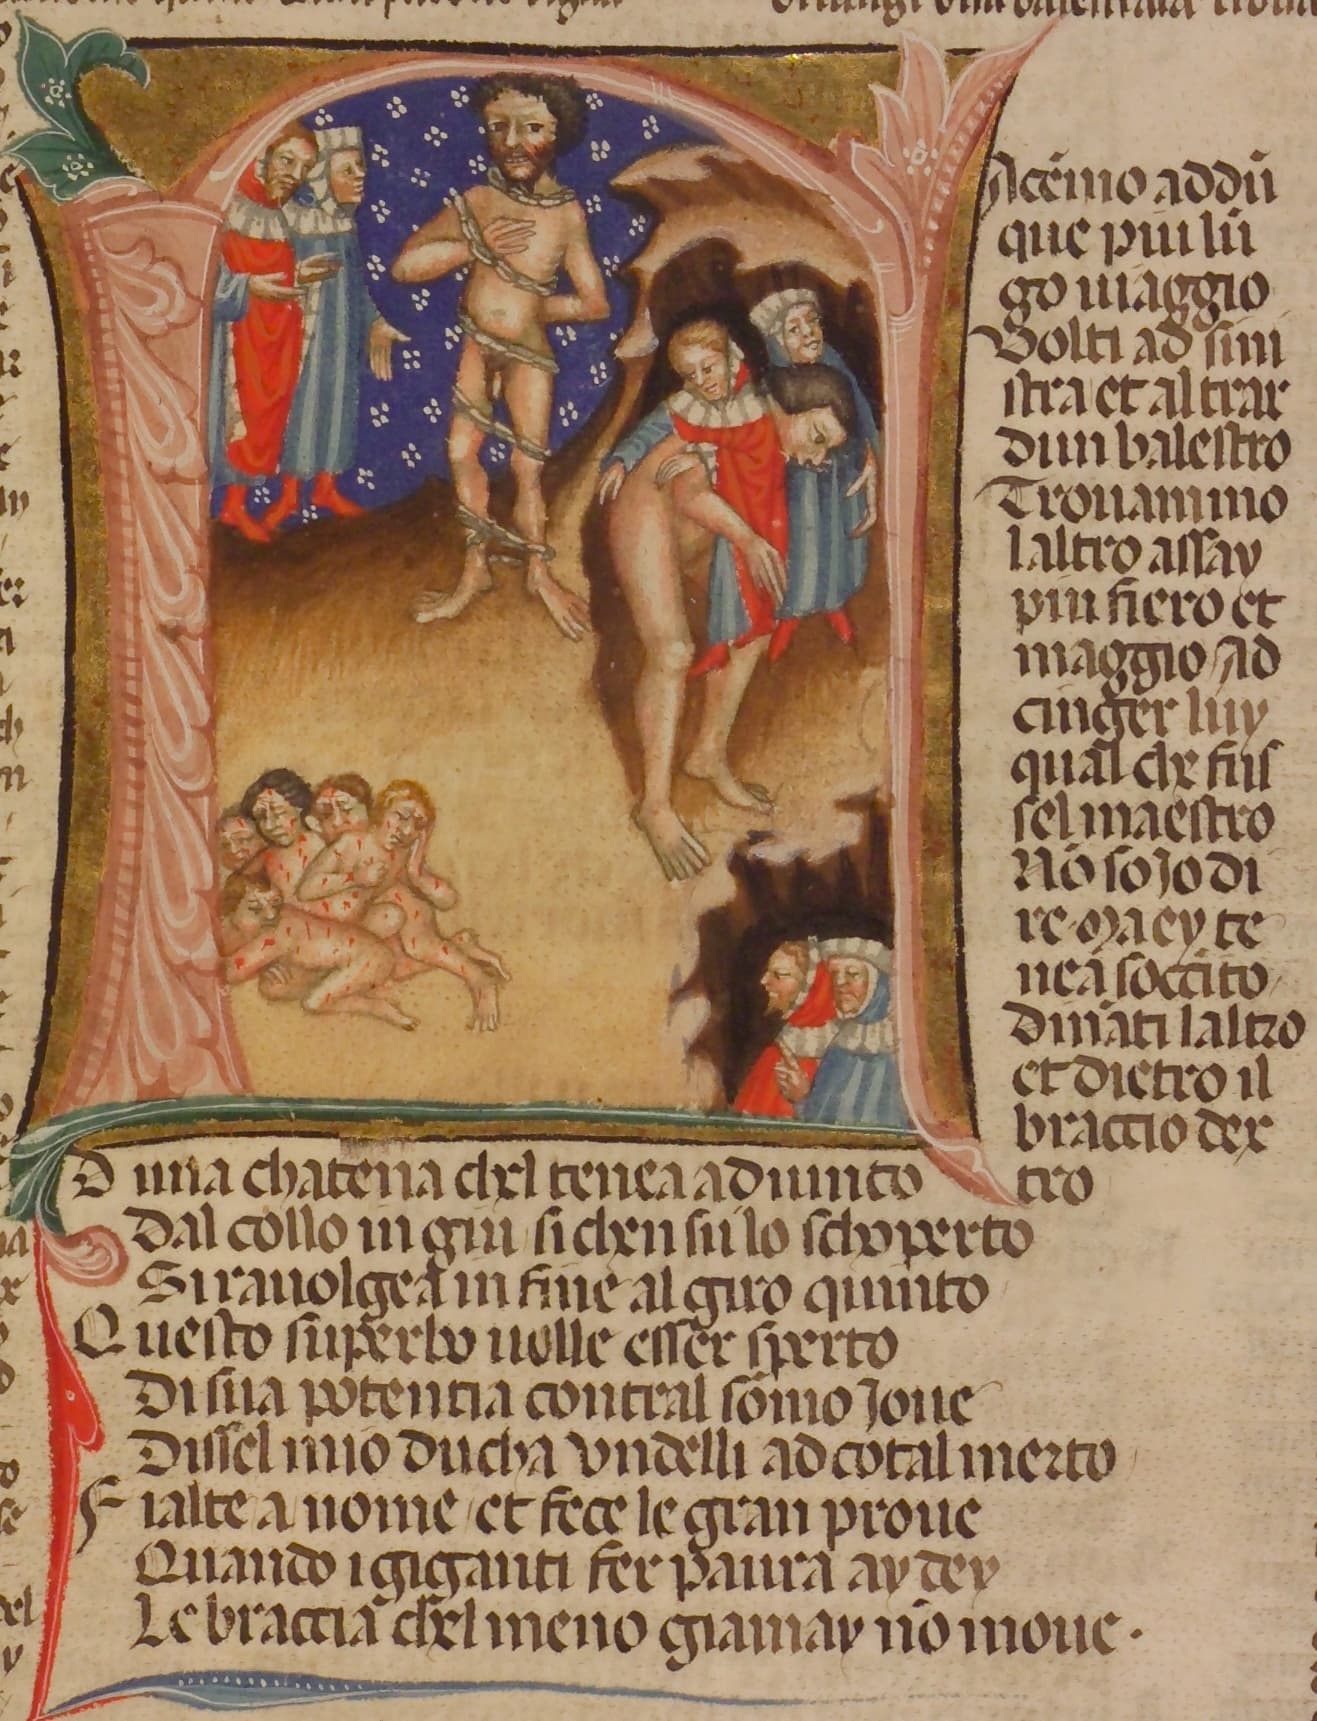 Acemo addū
que piu lū
go uiaggio
Volti ad sini
stra et al trar
dun balestro
Trouammo
laltro assay
piu fiero et
maggio Ad
cinger luy
qual che fus
sel maestro
Nō so Jo di
re Ma ey te
nea soccito
dināti laltro
et dietro il
braccio dex
tro
D una chatena chel tenea aduinto
Dal collo in giu si chen su lo schoperto
Si rauolgea in fine al giro quinto
Questo superbo uolle esser sperto
Di sua potentia contral sōmo Joue
Dissel mio ducha undelli ad cotal merto
Fialte a nome et fece le gran proue
Quando i giganti fer paura ay dey
Le braccia chel meno giamay nō moue.